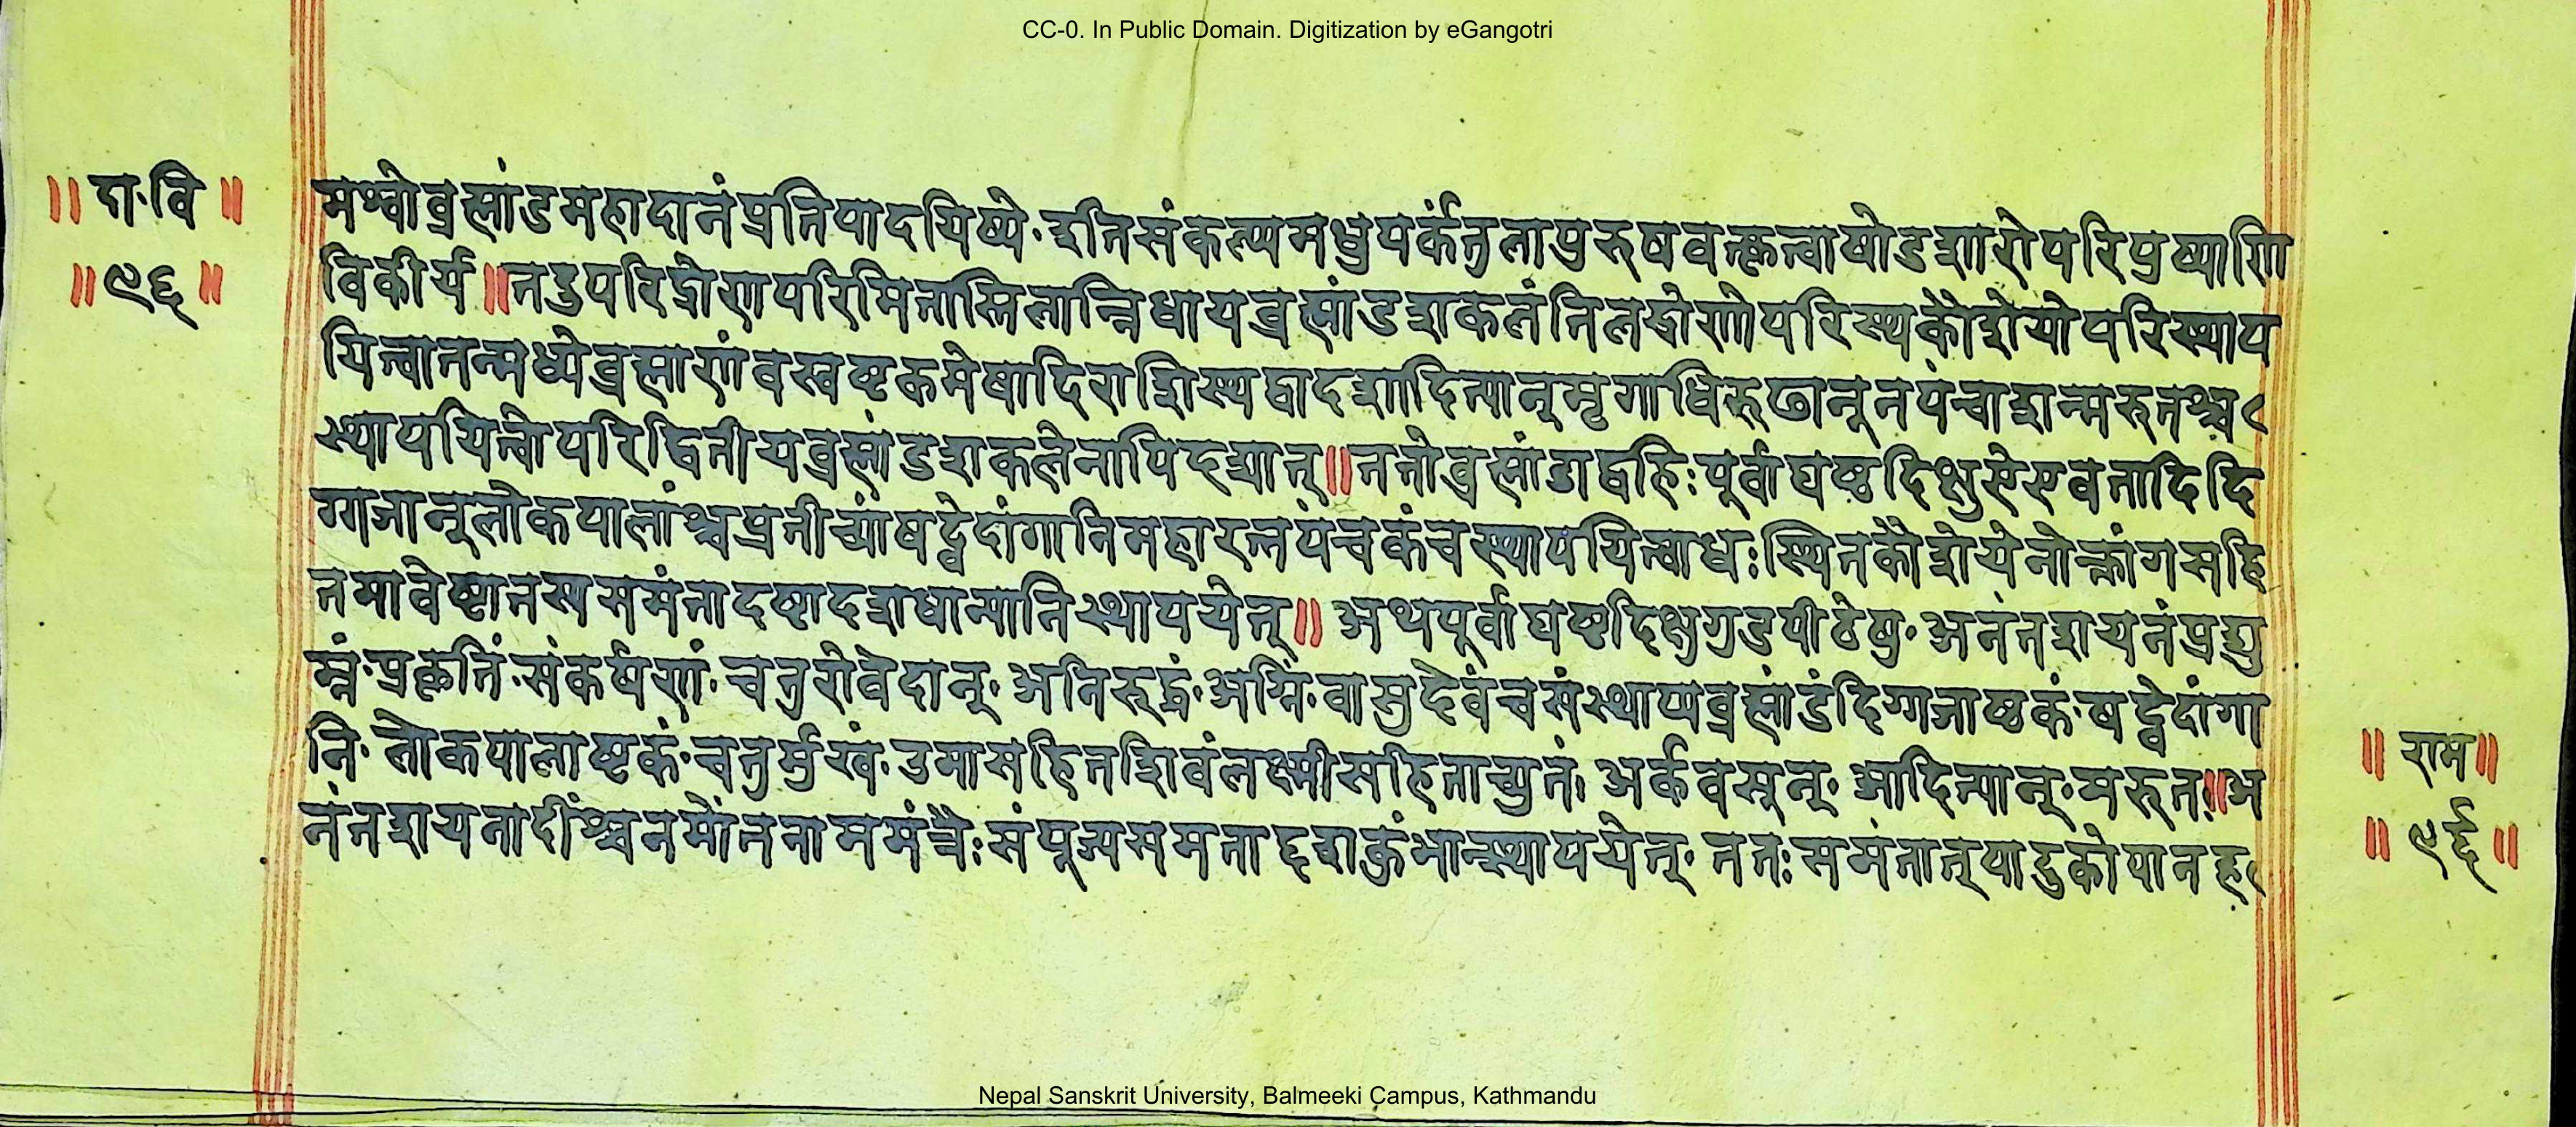 CC-0. In Public Domain. Digitization by eGangotri
॥ दा॰वि ॥
॥९६॥
मश्वोब्रह्मांडमहादानंप्रतिपादयिष्ये॰इतिसंकल्प्यमधुपर्कंतुलापुरुषवत्कृत्वाषोडशारोपरिपुष्पाणि
विकीर्य॥तदुपरिद्रोणपरिमितास्तिलान्निधायब्रह्मांडशकलंतिलद्रोणोपरिस्थकौशेयोपरिस्थाप
यित्वातन्मध्येब्रह्माणंवस्वष्टकमेषादिराशिस्थद्वादशादित्यान्मृगाधिरूढानूनपंचाशन्मरुतश्च
स्थापयित्वोपरिद्वितीयब्रह्मांडशकलेनापिदध्यात्॥ततोब्रह्मांडाद्बहिःपूर्वाद्यष्टदिक्षुऐरावतादिदि
ग्गजान्लोकपालांश्चप्रतीच्यांषद्वेदांगानिमहारत्नपंचकंचस्थापयित्वाधःस्थितकौशेयेनोक्तांगसहि
तमावेष्ट्यतस्यसमंतादष्टादशधान्यानिस्थापयेत्॥अथपूर्वाद्यष्टदिक्षुगुडपीठेषु॰अनंतशयनंप्रद्यु
म्नं॰प्रकृतिं॰संकर्षणं॰चतुरोवेदान्॰अनिरुद्धं॰अग्निं॰वासुदेवंचसंस्थाप्यब्रह्मांडंदिग्गजाष्टकं॰षद्वेदांगा
नि॰लोकपालाष्टकं॰चतुर्मुखं॰उमासहितशिवंलक्ष्मीसहिताच्युतं॰अर्कवसून्॰आदित्यान्॰मरुतः॥अ
नंतशयनादींश्चनमोंतनाममंत्रैःसंपूज्यसमंताद्दशकुंभान्स्थापयेत्॰ततःसमंतात्पादुकोपानह
॥ राम॥
॥ ९६॥
Nepal Sanskrit University, Balmeeki Campus, Kathmandu